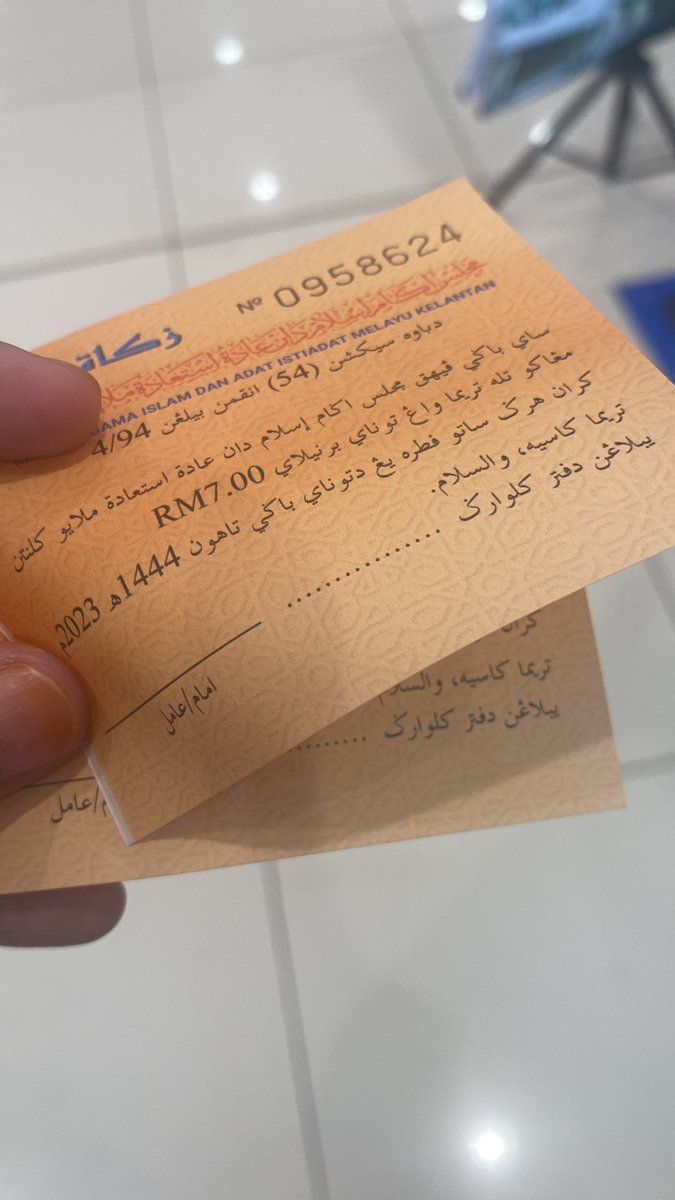 Nº 0958624
زكاة
مجلس اݢام إسلام دان عادة استعادة ملا
GAMA ISLAM DAN ADAT ISTIADAT MELAYU KELANTAN
دباوه سيكشن (54) انقمن بيلڠن 4/94
ساي باڬي ڤيهق مجلس اݢام إسلام دان عادة استعادة ملايو كلنتن
مڠاكو تله تريما واڠ توناي برنيلاي RM7.00
كران هرݢ ساتو فطره يڠ دتوناي باڬي تاهون 1444هـ 2023م
تريما كاسيه، والسلام.
بيلاڠن دفتر كلوارݢ ................
امام/عامل
كران
تريما كاسيه، والسلام
بيلاڠن دفتر كلوارݢ ........
م/عامل